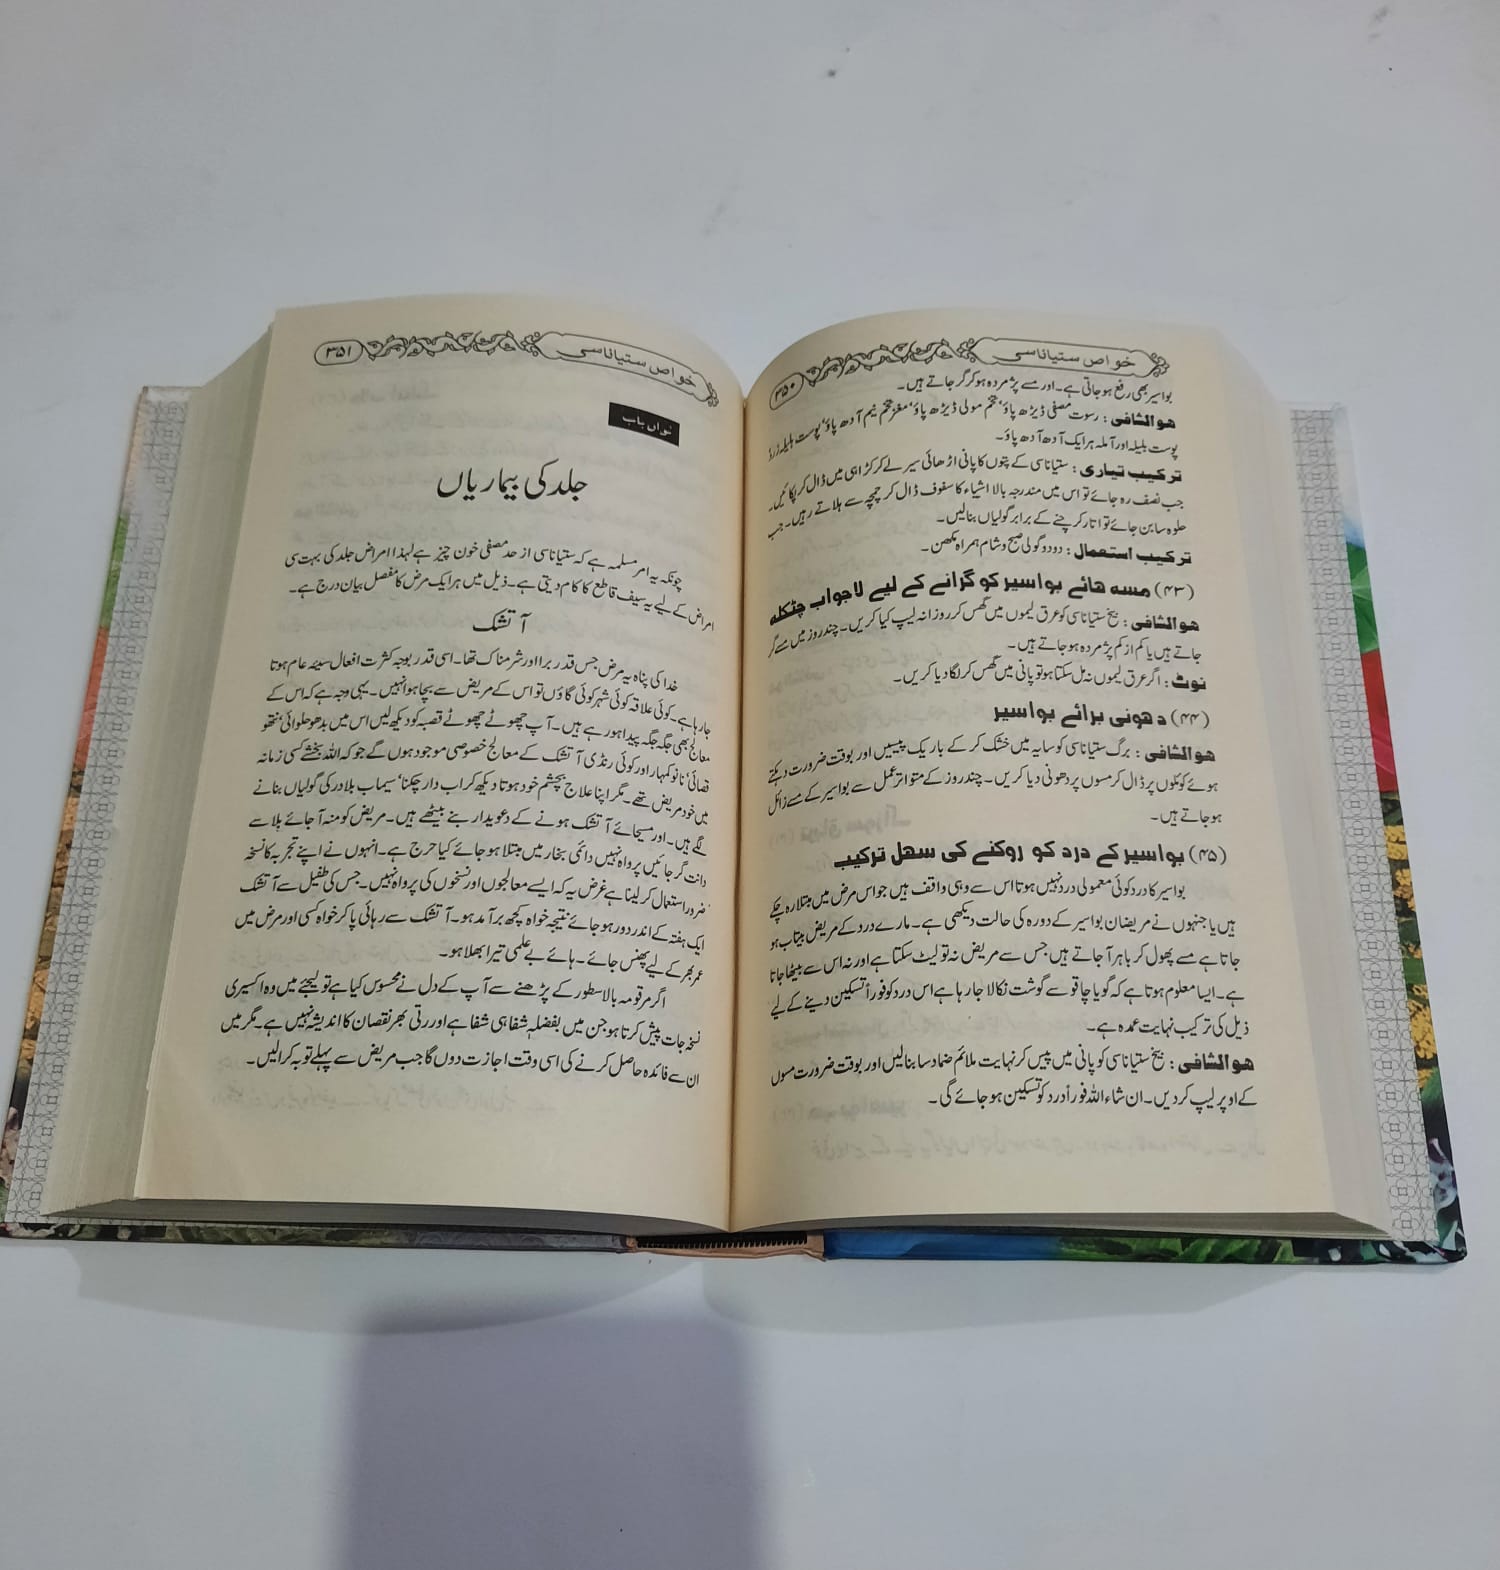 خواص ستیاناسی
۳۵۰
بواسیر بھی رفع ہو جاتی ہے۔ اور مسے پژمردہ ہو کر گر جاتے ہیں۔
ھوالشافی : رسوت مصفی ڈیڑھ پاؤ‘ تخم مولی ڈیڑھ پاؤ‘ مغز تخم نیم آدھ پاؤ‘ پوست ہلیلہ زرد
پوست بلیلہ اور آملہ ہر ایک آدھ آدھ پاؤ۔
ترکیب تیاری : ستیاناسی کے پتوں کا پانی اڑھائی سیر لے کر کڑاہی میں ڈال کر پکائیں۔
جب نصف رہ جائے تو اس میں مندرجہ بالا اشیاء کا سفوف ڈال کر چمچہ سے ہلاتے رہیں۔ جب
حلوہ سا بن جائے تو اتار کر چنے کے برابر گولیاں بنا لیں۔
ترکیب استعمال : دو دو گولی صبح و شام ہمراہ مکھن۔
(۴۳) مسہ ھائے بواسیر کو گرانے کے لیے لاجواب چٹکلہ
ھوالشافی : بیخ ستیاناسی کو عرق لیموں میں گھس کر روزانہ لیپ کیا کریں۔ چند روز میں مسے گر
جاتے ہیں یا کم از کم پژمردہ ہو جاتے ہیں۔
نوٹ : اگر عرق لیموں نہ مل سکتا ہو تو پانی میں گھس کر لگا دیا کریں۔
(۴۴) دھونی برائے بواسیر
ھوالشافی : برگ ستیاناسی کو سایہ میں خشک کر کے باریک پیسیں اور بوقت ضرورت دہکتے
ہوئے کوئلوں پر ڈال کر مسوں پر دھونی دیا کریں۔ چند روز کے متواتر عمل سے بواسیر کے مسے زائل
ہو جاتے ہیں۔
(۴۵) بواسیر کے درد کو روکنے کی سھل ترکیب
بواسیر کا درد کوئی معمولی درد نہیں ہوتا اس سے وہی واقف ہیں جو اس مرض میں مبتلا رہ چکے
ہیں یا جنہوں نے مریضان بواسیر کے دورہ کی حالت دیکھی ہے۔ مارے درد کے مریض بیتاب ہو
جاتا ہے مسے پھول کر باہر آ جاتے ہیں جس سے مریض نہ تو لیٹ سکتا ہے اور نہ اس سے بیٹھا جاتا
ہے۔ ایسا معلوم ہوتا ہے کہ گویا چاقو سے گوشت نکالا جا رہا ہے اس درد کو فوراً تسکین دینے کے لیے
ذیل کی ترکیب نہایت عمدہ ہے۔
ھوالشافی : بیخ ستیاناسی کو پانی میں پیس کر نہایت ملائم ضماد سا بنا لیں اور بوقت ضرورت مسوں
کے اوپر لیپ کر دیں۔ ان شاء اللہ فوراً درد کو تسکین ہو جائے گی۔
خواص ستیاناسی
۳۵۱
نواں باب
جلد کی بیماریاں
چونکہ یہ امر مسلمہ ہے کہ ستیاناسی از حد مصفی خون چیز ہے لہذا امراض جلد کی بہت سی
امراض کے لیے یہ سیف قاطع کا کام دیتی ہے۔ ذیل میں ہر ایک مرض کا مفصل بیان درج ہے۔
آتشک
خدا کی پناہ یہ مرض جس قدر برا اور شرمناک تھا۔ اسی قدر بوجہ کثرت افعال سیئہ عام ہوتا
جا رہا ہے۔ کوئی علاقہ کوئی شہر کوئی گاؤں تو اس کے مریض سے بچا ہوا نہیں۔ یہی وجہ ہے کہ اس کے
معالج بھی جگہ جگہ پیدا ہو رہے ہیں۔ آپ چھوٹے چھوٹے قصبہ کو دیکھ لیں اس میں بدھو حلوائی‘ نتھو
قصائی‘ نانو کمہار اور کوئی رنڈی آتشک کے معالج خصوصی موجود ہوں گے جو کہ اللہ بخشے کسی زمانہ
میں خود مریض تھے۔ مگر اپنا علاج بچشم خود ہوتا دیکھ کر اب دار چکنا‘ سیماب بلادر کی گولیاں بنانے
لگے ہیں۔ اور مسیحائے آتشک ہونے کے دعویدار بنے بیٹھے ہیں۔ مریض کو منہ آ جائے بلا سے
دانت گر جائیں پرواہ نہیں دائمی بخار میں مبتلا ہو جائے کیا حرج ہے۔ انہوں نے اپنے تجربہ کا نسخہ
ضرور استعمال کر لینا ہے غرض یہ کہ ایسے معالجوں اور نسخوں کی پرواہ نہیں۔ جس کی طفیل سے آتشک
ایک ہفتہ کے اندر دور ہو جائے نتیجہ خواہ کچھ برآمد ہو۔ آتشک سے رہائی پا کر خواہ کسی اور مرض میں
عمر بھر کے لیے پھنس جائے۔ ہائے بے علمی تیرا بھلا ہو۔
اگر مرقومہ بالا سطور کے پڑھنے سے آپ کے دل نے محسوس کیا ہے تو لیجئے میں وہ اکسیری
نسخہ جات پیش کرتا ہو جن میں بفضلہٖ شفا ہی شفا ہے اور رتی بھر نقصان کا اندیشہ نہیں ہے۔ مگر میں
ان سے فائدہ حاصل کرنے کی اسی وقت اجازت دوں گا جب مریض سے پہلے توبہ کرا لیں۔